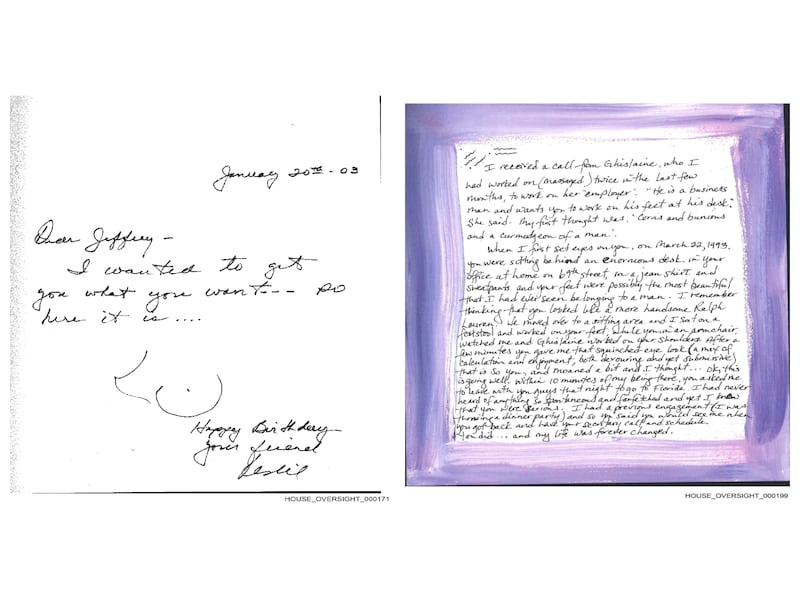 January 20th - 03
Dear Jeffrey -
I wanted to get
you what you want -- so
here it is ....
Happy Birthday
your friend
Leslie
HOUSE_OVERSIGHT_000171
I received a call from Ghislaine, who I
had worked on (massaged) twice in the last few
months, to work on her 'employer'. "He is a business
man and wants you to work on his feet at his desk."
She said. My first thought was, 'Corns and bunions
and a curmudgeon of a man'.
When I first set eyes on you, on March 22, 1993,
you were sitting behind an enormous desk in your
office at home on 69th street, in a jean shirt and
sweatpants and your feet were possibly the most beautiful
that I had ever seen belonging to a man. I remember
thinking that you looked like a more handsome Ralph
Lauren. We moved over to a sitting area and I sat on a
footstool and worked on your feet, while you, in an armchair,
watched me and Ghislaine worked on your shoulders. After a
few minutes you gave me that squinched eye look (a mix of
calculation and enjoyment, both devouring and yet submissive)
that is so you, and moaned a bit and I thought... OK, this
is going well. Within 10 minutes of my being there, you asked me
to leave with you guys that night to go to Florida. I had never
heard of anything so spontaneous and farfetched and yet I knew
that you were serious. I had a previous engagement (I was
throwing a dinner party) and so you said you would see me when
you got back and have your secretary call and schedule.
You did... and my life was forever changed.
HOUSE_OVERSIGHT_000199